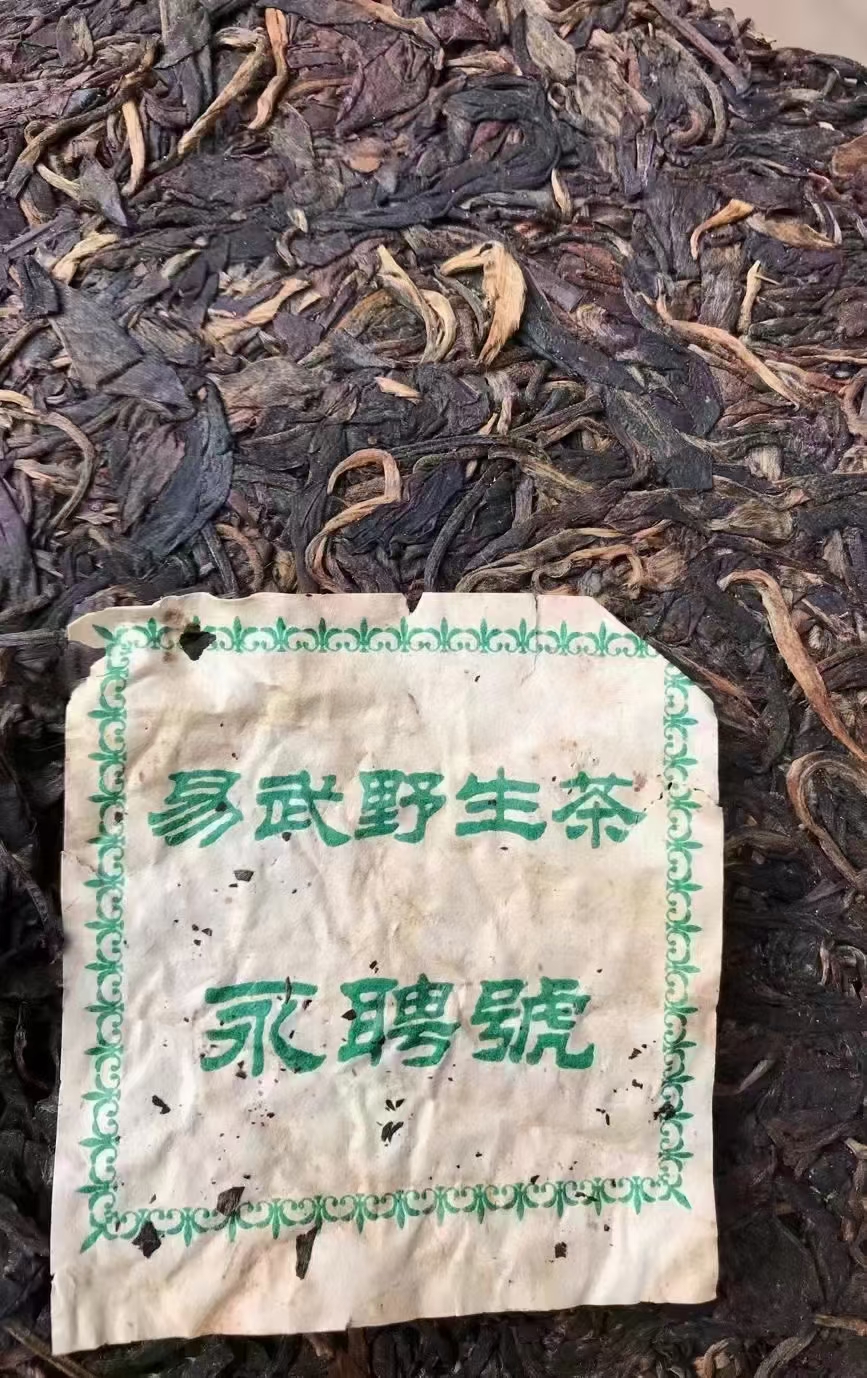 易武野生茶
永聘號